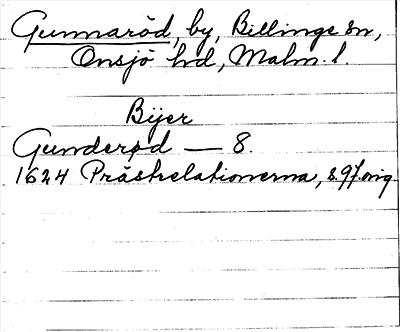 Gunnaröd, by, Billinge sn,
Onsjö hd, Malm. l.
Bÿer
Gunderød — 8.
1624 Prästrelationerna, s. 97. orig.